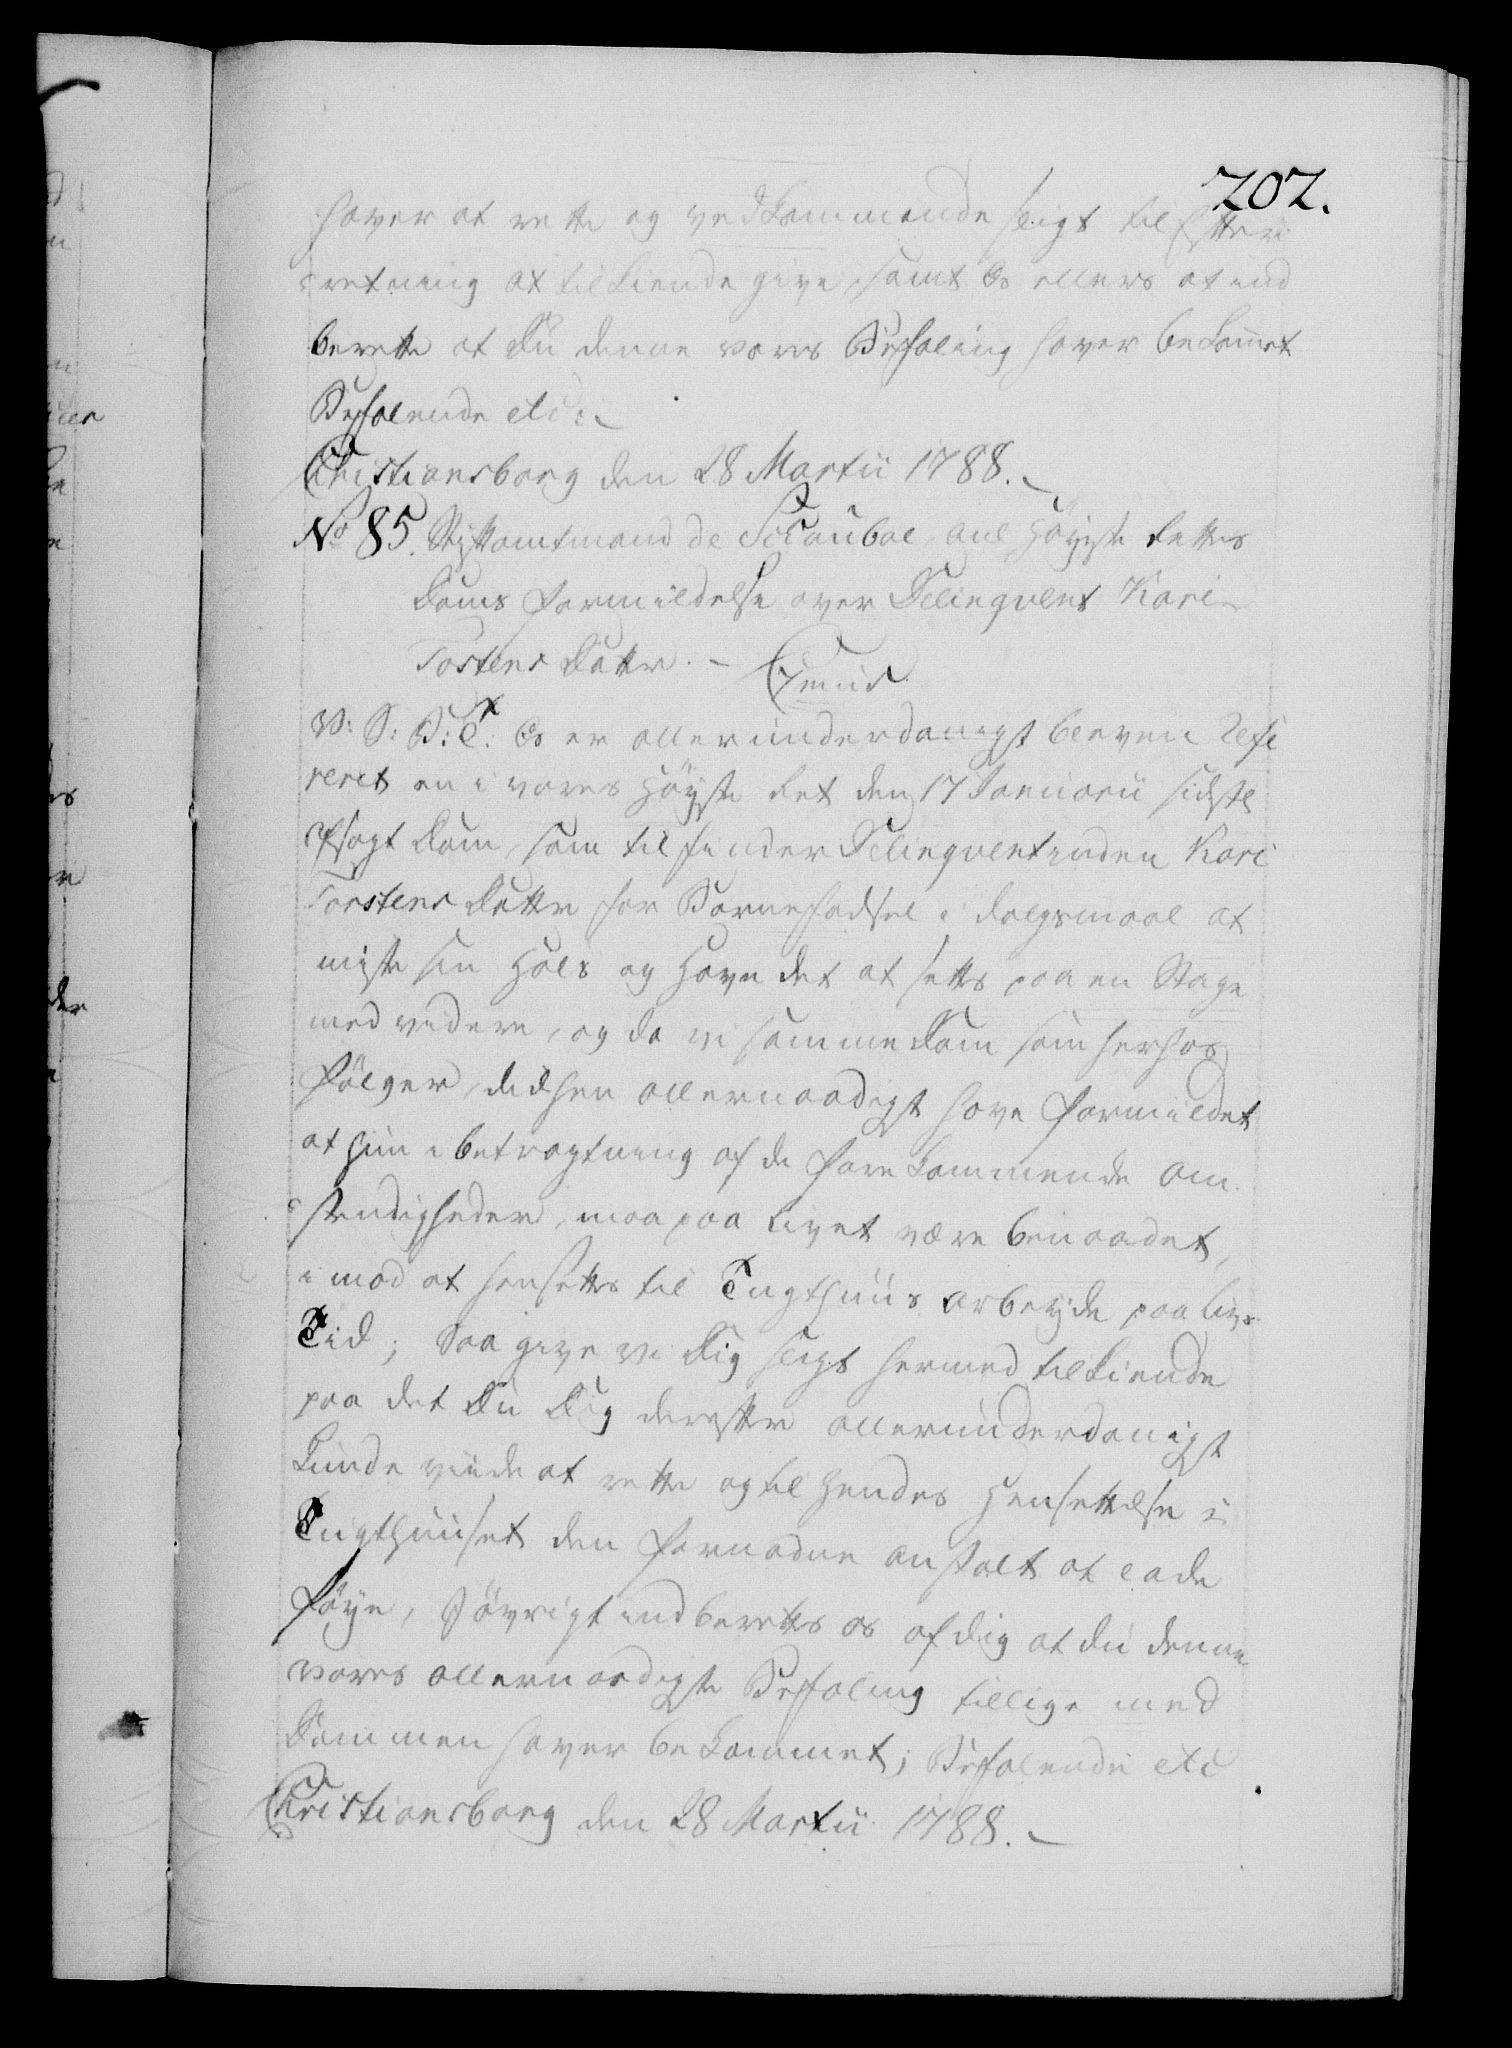 202.
haver at rette og vedkommende sligt til Efter
retning at tilkiende give, samt Os ellers at ind
berette at Du denne vores Befaling haver bekommet
Befalende etc:
Christiansborg den 28 Martii 1788.
No 85. Stiftamtmand de Schouboe anl Høyeste Rettes
Doms formildelse over Delinqvent Kari
Tostens Datter.
V: S: B: T: Os er allerunderdanigst bleven Refe
reret en i vores Høyeste Ret den 17 Januarii sidstl
afsagt Dom, som tilfinder Delinqventinden Kari
Torstens Datter for Barnefødsel i dølgsmaal at
miste sin Hals og Hovedet at settes paa en Stage
med videre, og da vi samme Dom som herhos
følger, didhen allernaadigst have formildet
at hun i betragtning af de forekommende Om
stendigheder, maa paa Livet være benaadet,
imod at hensettes til Tugthuus Arbeyde paa Livs
Tid; Saa give vi Dig sligt hermed tilkiende
paa det Du Dig derefter allerunderdanigst
kunde viide at rette og til hendes Hensettelse i
Tugthuuset den fornødne Anstalt at lade
føye, I øvrigt indberettes os af Dig at du denne
vores allernaadigste Befaling tillige med
Dommen haver bekommet; Befalende etc
Christiansborg den 28 Martii 1788.